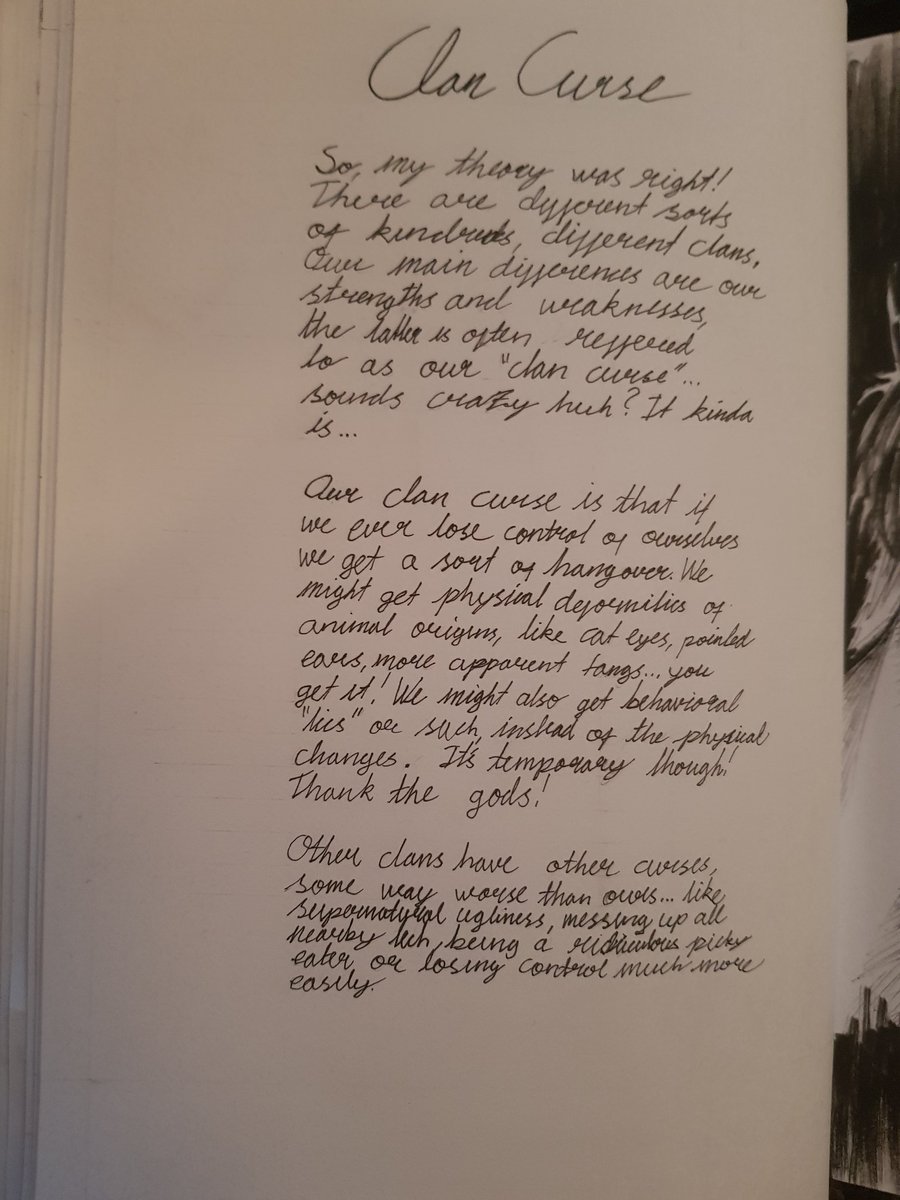 Clan Curse
So, my theory was right!
There are different sorts
of kindreds, different clans.
Our main differences are our
strengths and weaknesses,
the latter is often reffered
to as our "clan curse"...
sounds crazy huh? It kinda
is...
Our clan curse is that if
we ever lose control of ourselves
we get a sort of hangover. We
might get physical deformities of
animal origins, like cat eyes, pointed
ears, more apparent fangs... you
get it! We might also get behavioral
"tics" or such, instead of the physical
changes. It's temporary though!
Thank the gods!
Other clans have other curses,
some way worse than ours... like
supernatural ugliness, messing up all
nearby tech, being a ridiculous picky
eater or losing control much more
easily.